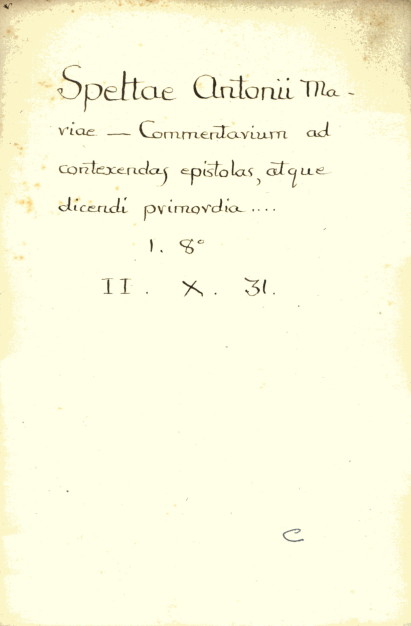 Speltae Antonii Ma-
riae — Commentarium ad
contexendas epistolas, atque
dicendi primordia ....
1. 8°
II. X. 31.
C